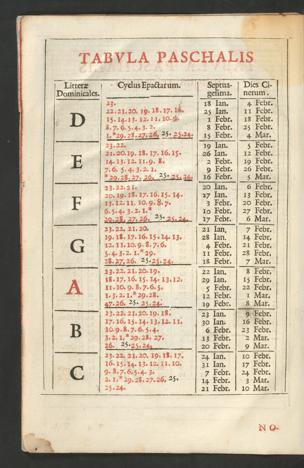 TABVLA PASCHALIS
Litteræ Dominicales. Cyclus Epactarum. Septuagesima. Dies Cinerum.
D
23. 18 Ian. 4 Febr.
22. 21. 20. 19. 18. 17. 16. 25 Ian. 11 Febr.
15. 14. 13. 12. 11. 10. 9. 1 Febr. 18 Febr.
8. 7. 6. 5. 4. 3. 2. 8 Febr. 25 Febr.
1. * 29. 28. 27. 26. 25. 25. 24. 15 Febr. 4 Mar.
E
23. 22. 19 Ian. 5 Febr.
21. 20. 19. 18. 17. 16. 15. 26 Ian. 12 Febr.
14. 13. 12. 11. 10. 9. 8. 2 Febr. 19 Febr.
7. 6. 5. 4. 3. 2. 1. 9 Febr. 26 Febr.
* 29. 28. 27. 26. 25. 25. 24. 16 Febr. 5 Mar.
F
23. 22. 21. 20 Ian. 6 Febr.
20. 19. 18. 17. 16. 15. 14. 27 Ian. 13 Febr.
13. 12. 11. 10. 9. 8. 7. 3 Febr. 20 Febr.
6. 5. 4. 3. 2. 1. * 10 Febr. 27 Febr.
29. 28. 27. 26. 25. 25. 24. 17 Febr. 6 Mar.
G
23. 22. 21. 20. 21 Ian. 7 Febr.
19. 18. 17. 16. 15. 14. 13. 28 Ian. 14 Febr.
12. 11. 10. 9. 8. 7. 6. 4 Febr. 21 Febr.
5. 4. 3. 2. 1. * 29. 11 Febr. 28 Febr.
28. 27. 26. 25. 25. 24. 18 Febr. 7 Mar.
A
23. 22. 21. 20. 19. 22 Ian. 8 Febr.
18. 17. 16. 15. 14. 13. 12. 29 Ian. 15 Febr.
11. 10. 9. 8. 7. 6. 5. 5 Febr. 22 Febr.
12 Febr. 1 Mar.
19 Febr. 8 Mar.
B
23. 22. 21. 20. 19. 18. 23 Ian. 9 Febr.
17. 16. 15. 14. 13. 12. 11. 30 Ian. 16 Febr.
10. 9. 8. 7. 6. 5. 4. 6 Febr. 23 Febr.
3. 2. 1. * 29. 28. 27. 13 Febr. 2 Mar.
26. 25. 25. 24. 20 Febr. 9 Mar.
C
23. 22. 21. 20. 19. 18. 17. 24 Ian. 10 Febr.
16. 15. 14. 13. 12. 11. 10. 31 Ian. 17 Febr.
9. 8. 7. 6. 5. 4. 3. 7 Febr. 24 Febr.
2. 1. * 29. 28. 27. 26. 25. 14 Febr. 3 Mar.
25. 24. 21 Febr. 10 Mar.
NO-